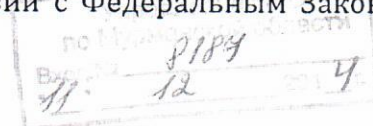 сии с Федеральным Зако
по Мурманской области
8187
11. 12 201 4